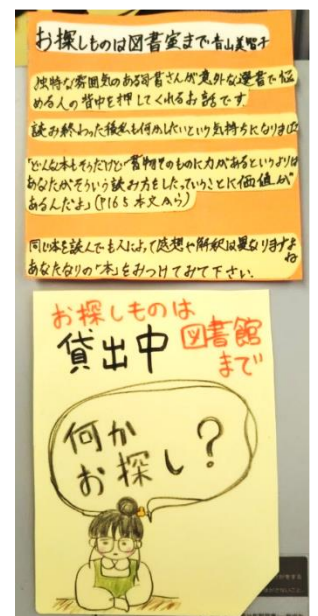 お探しものは図書室まで 青山美智子
独特な雰囲気のある司書さんが意外な選書で悩
める人の背中を押してくれるお話です。
読み終わった後私も何かしたいという気持ちになりました
「どんな本もそうだけど、書物そのものに力があるというよりは
あなたがそういう読み方をしたっていうことに価値が
あるんだよ」(P165 本文から)
同じ本を読んでも人によって感想や解釈は異なりますよね
あなたなりの「本」をみつけてみて下さい。
お探しものは
貸出中 図書館
まで
何か
お探し?